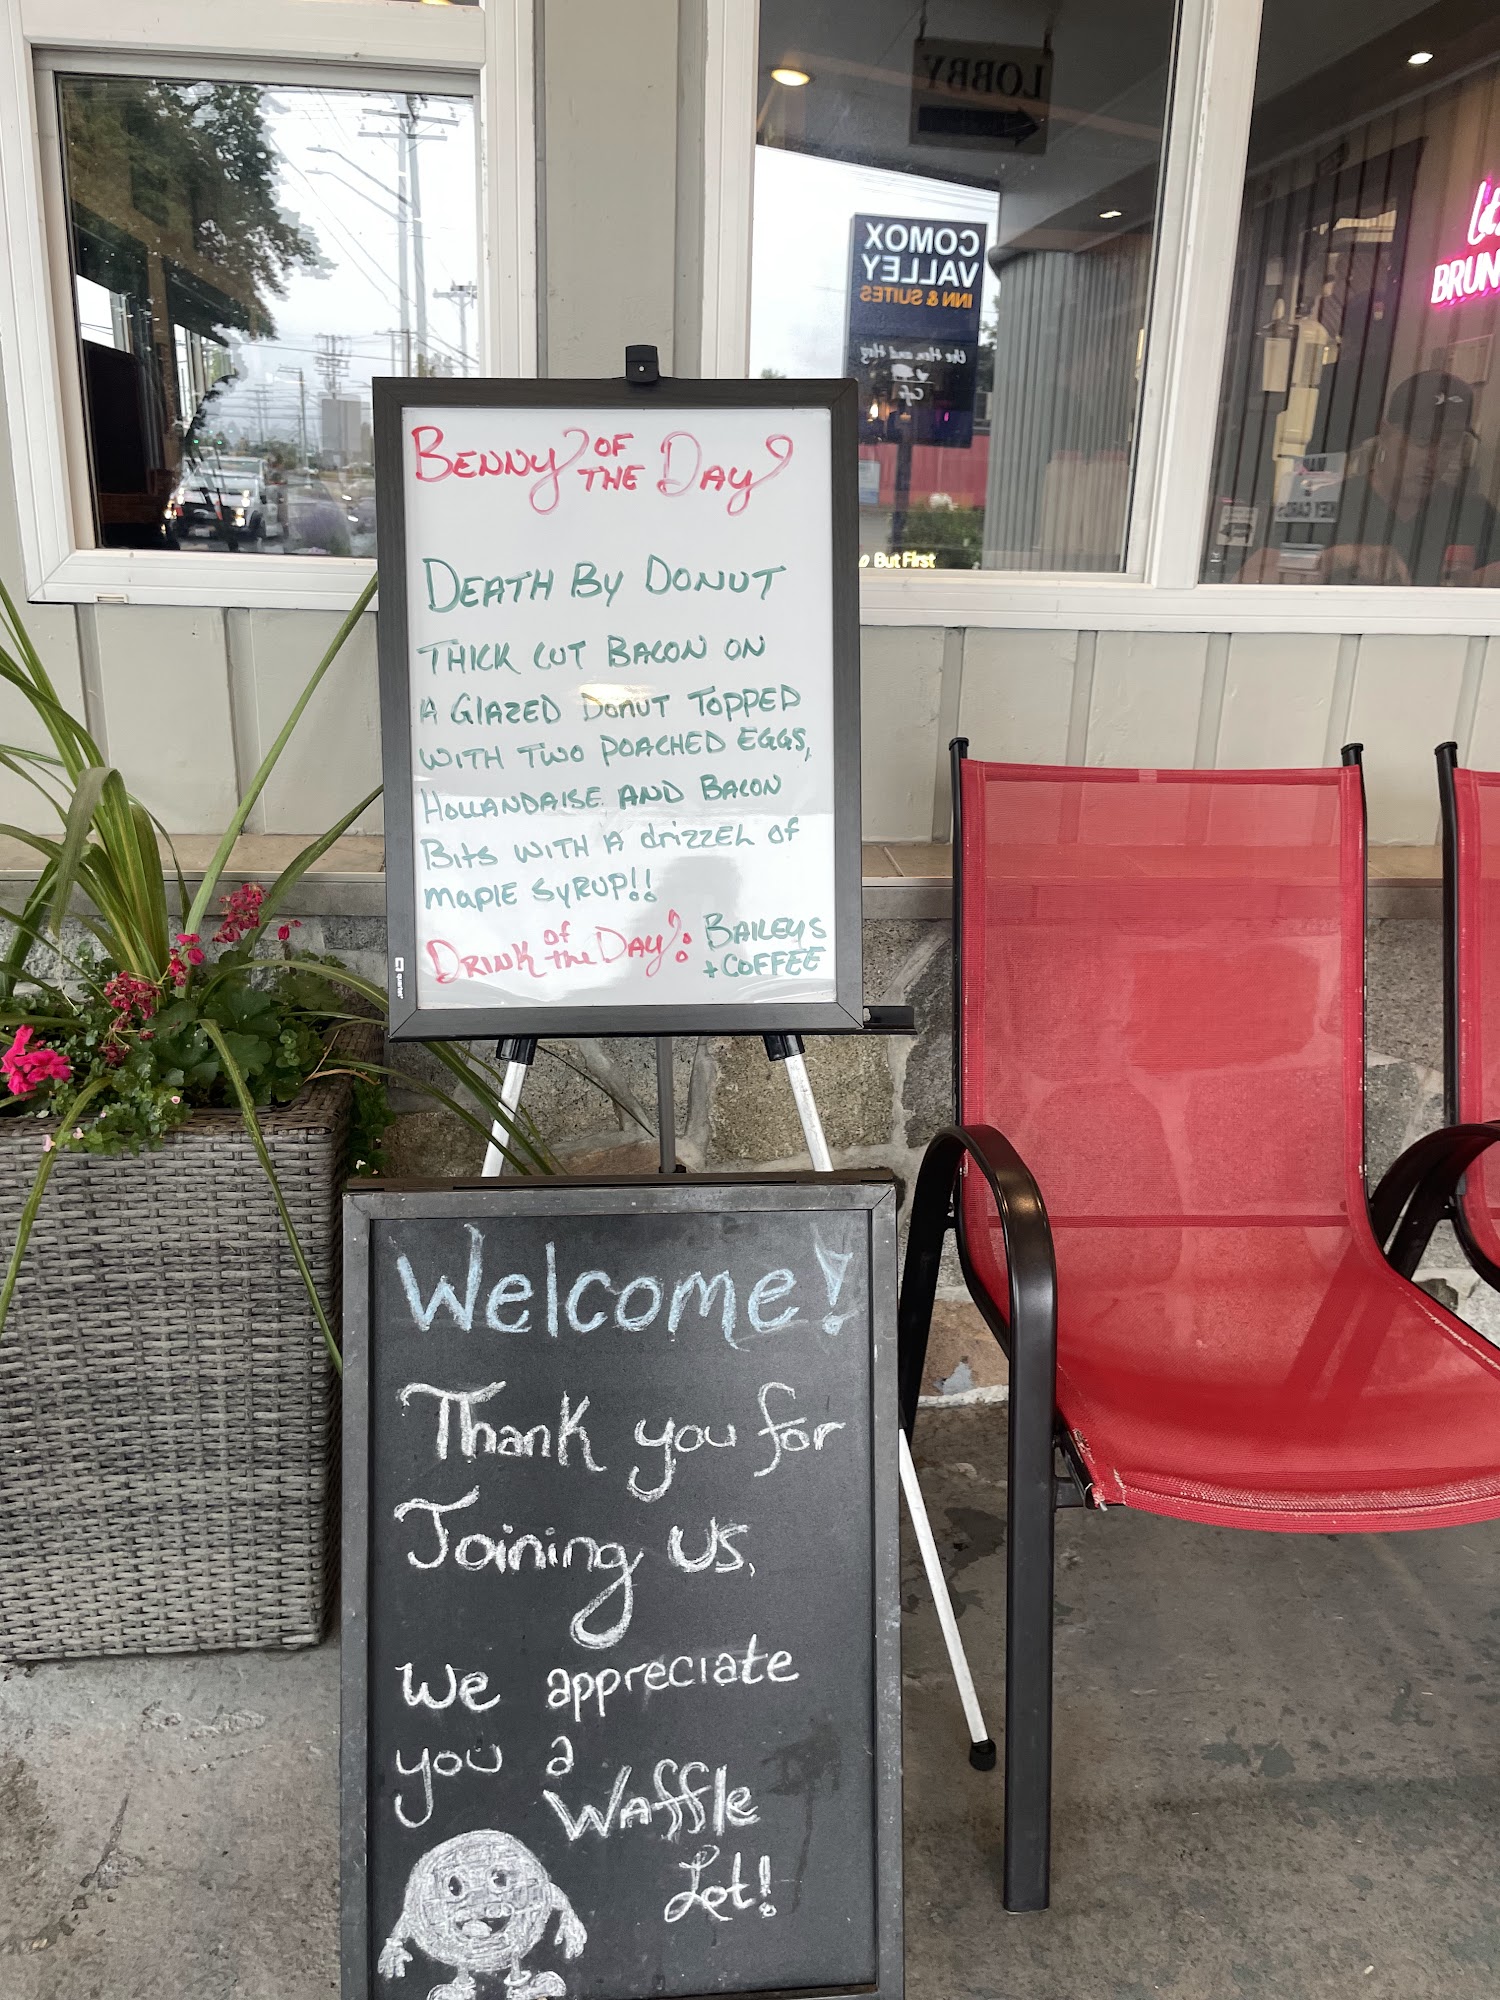 LOBBY
COMOX
VALLEY
INN & SUITES
the Hen and Hog
Cafe
BRUN
But First
KEY CARDS
BENNY OF THE DAY
DEATH BY DONUT
THICK CUT BACON ON
A GlAZED DONUT TOPPED
WITH TWO POACHED EGGS,
HOLLANDAISE AND BACON
Bits WITH A drizzEL of
maple SYRUP!!
DRINK of the DAY: BAILEYS
+ COFFEE
quartet
Welcome!
Thank you for
Joining us,
We appreciate
you a
Waffle
Lot!